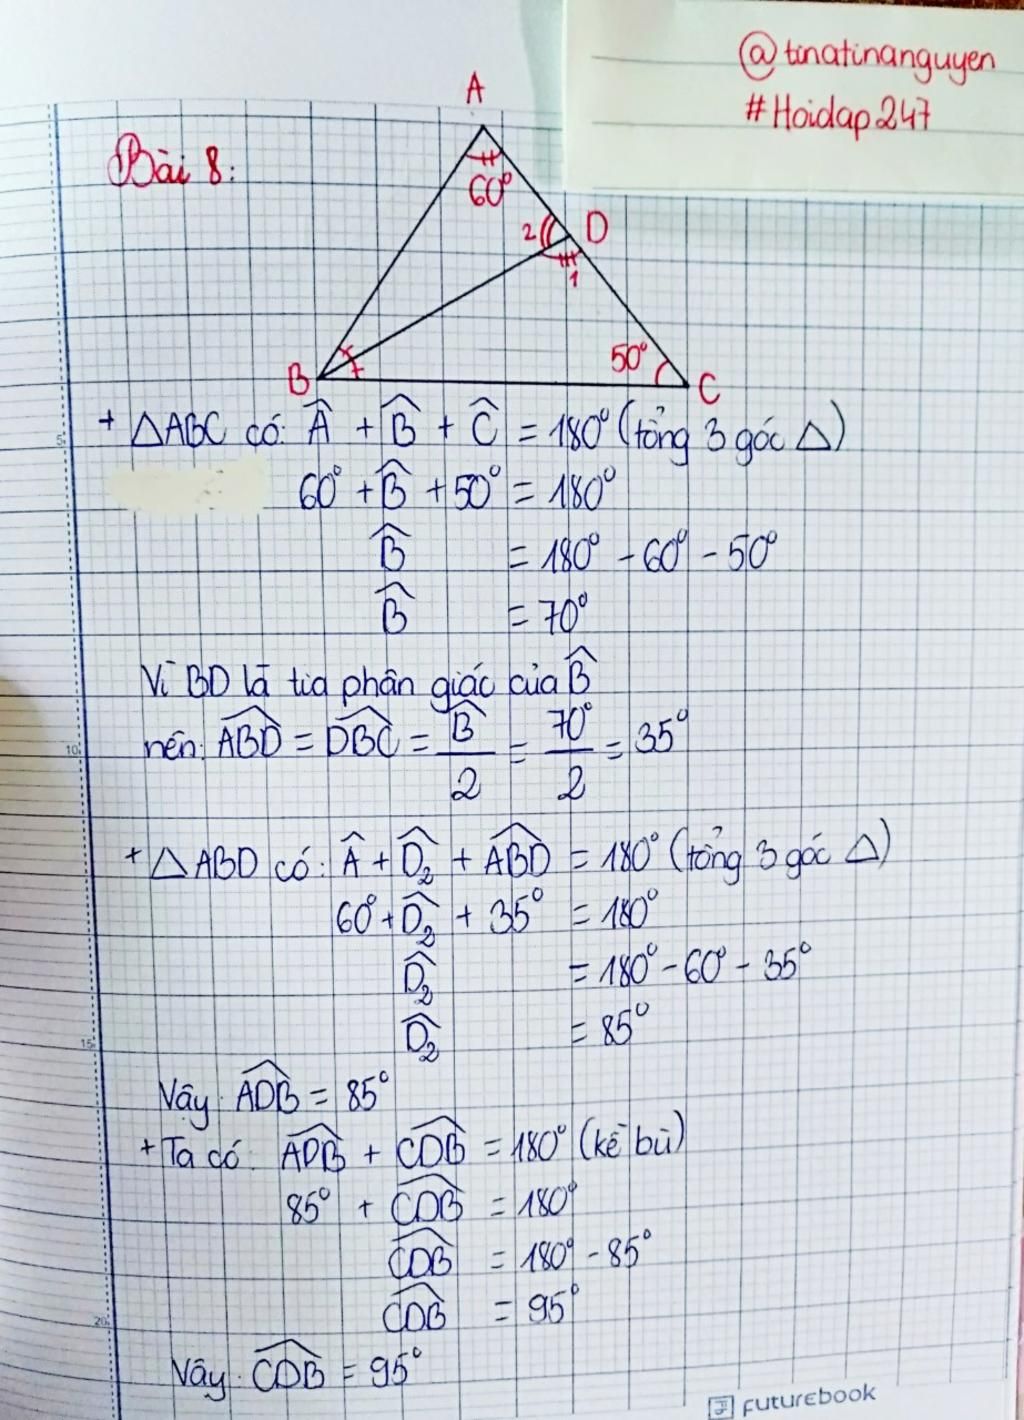 @tinatinanguyen
#Hoidap247
Bài 8:
A
60°
2
D
1
B
50°
C
+ △ABC có: Â + B̂ + Ĉ = 180° (tổng 3 góc △)
60° + B̂ + 50° = 180°
B̂ = 180° - 60° - 50°
B̂ = 70°
Vì BD là tia phân giác của B̂
nên: \widehat{ABD} = \widehat{DBC} = \frac{B̂}{2} = \frac{70°}{2} = 35°
+ △ABD có: Â + D̂₂ + \widehat{ABD} = 180° (tổng 3 góc △)
60° + D̂₂ + 35° = 180°
D̂₂ = 180° - 60° - 35°
D̂₂ = 85°
Vậy \widehat{ADB} = 85°
+ Ta có: \widehat{ADB} + \widehat{CDB} = 180° (kề bù)
85° + \widehat{CDB} = 180°
\widehat{CDB} = 180° - 85°
\widehat{CDB} = 95°
Vậy \widehat{CDB} = 95°
5
10
15
20
FUTUREBOOK